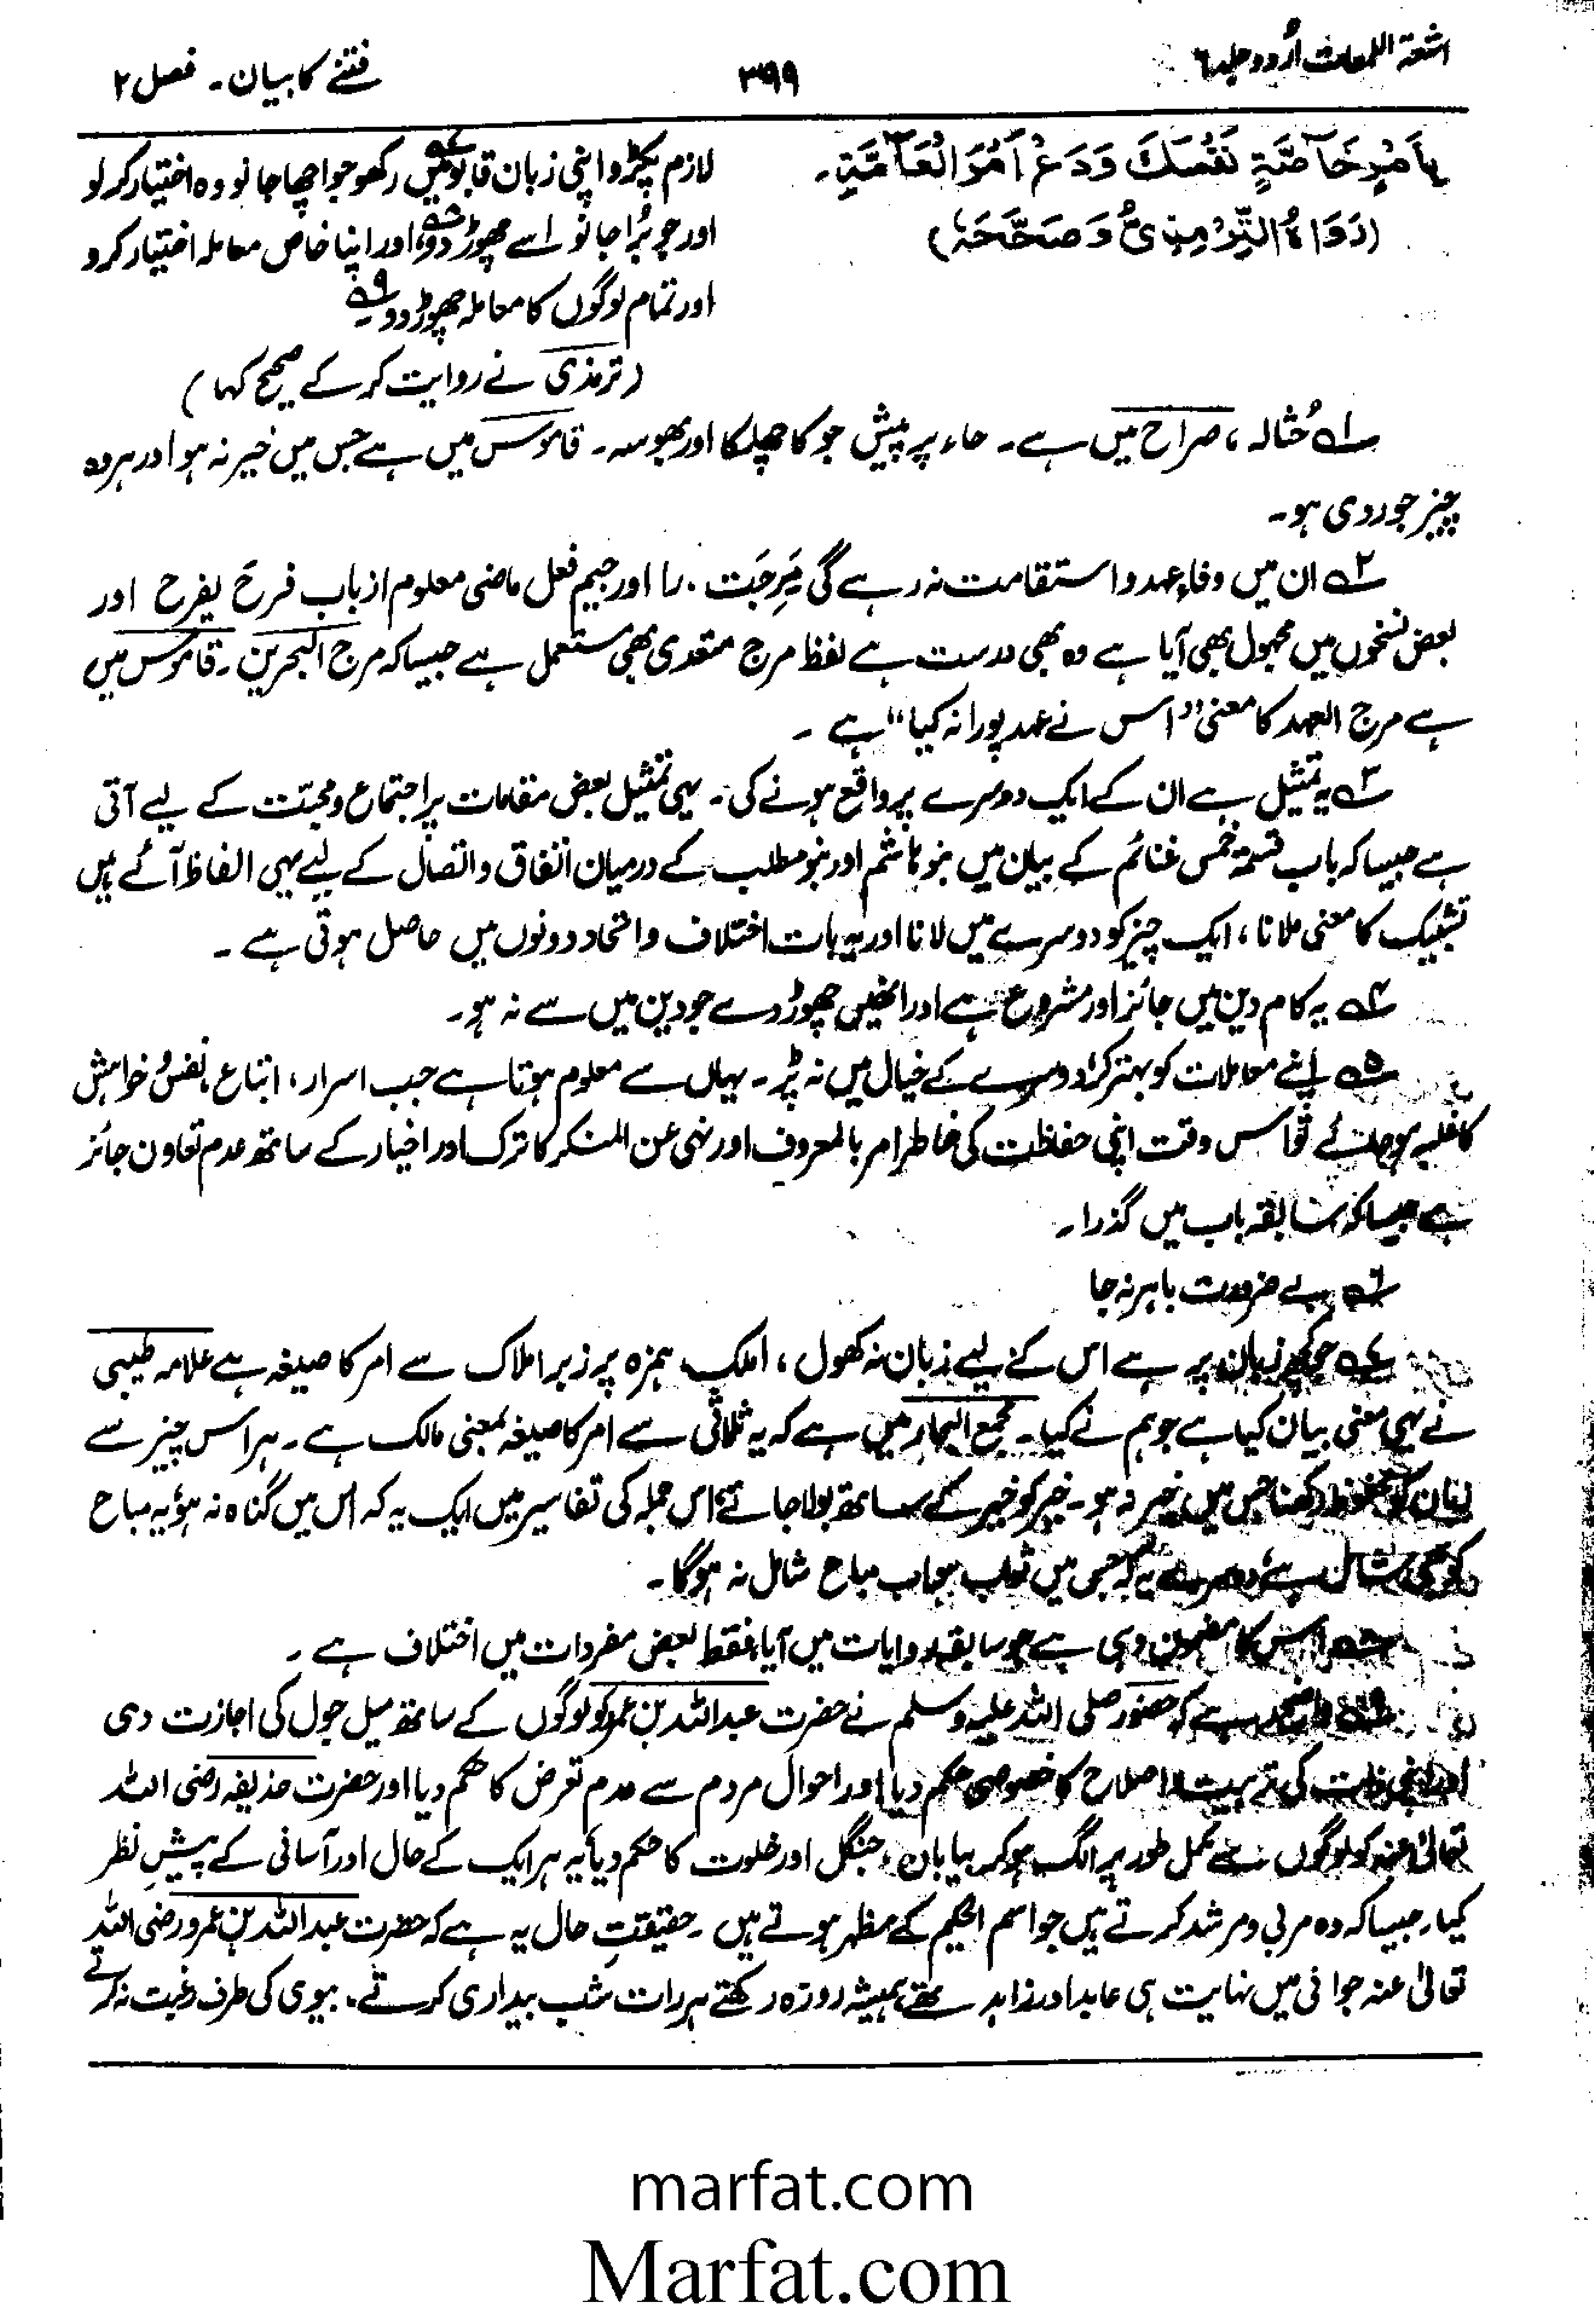 اشعۃ اللمعات اُردو جلد ۶
۳۹۹
فتنے کا بیان۔ فصل ۲
بِاَمْرِ خَآصَّةِ نَفْسِكَ وَدَعْ اَمْرَ الْعَآمَّةِ۔
(رَوَاهُ التِّرْمِذِیُّ وَصَحَّحَهٗ)
لازم پکڑو اپنی زبان قابو میں ۷ رکھو جو اچھا جانو وہ اختیار کر لو
اور جو بُرا جانو اسے چھوڑ دو ۸، اور اپنا خاص معاملہ اختیار کرو
اور تمام لوگوں کا معاملہ چھوڑ دو ۹۔
(ترمذی نے روایت کر کے صحیح کہا)
۱ حُثالہ، صراح میں ہے۔ حاء پر پیش جو کا چھلکا اور بھوسہ۔ قاموس میں ہے جس میں خیر نہ ہو اور ہر وہ
چیز جو ردی ہو۔
۲ ان میں وفاءِ عہد و استقامت نہ رہے گی مَرِجَت۔ را اور جیم فعل ماضی معلوم از باب فرحَ یفرح اور
بعض نسخوں میں مجہول بھی آیا ہے وہ بھی درست ہے لفظ مرج متعدی بھی مستعمل ہے جیسا کہ مرج البحرین۔ قاموس میں
ہے مرج العہد کا معنی ”اس نے عہد پورا نہ کیا“ ہے۔
۳ یہ تمثیل ہے ان کے ایک دوسرے پر واقع ہونے کی۔ یہی تمثیل بعض مقامات پر اجتماع و محبت کے لیے آتی
ہے جیسا کہ باب قسمۃ خمس غنائم کے بیان میں بنو ہاشم اور بنو مطلب کے درمیان اتفاق و اتصال کے لیے یہی الفاظ آئے ہیں
تشبیک کا معنی ملانا، ایک چیز کو دوسرے میں لانا اور یہ بات اختلاف و اتحاد دونوں میں حاصل ہوتی ہے۔
۴ یہ کام دین میں جائز اور مشروع ہے اور انھیں چھوڑ دے جو دین میں سے نہ ہو۔
۵ اپنے معاملات کو بہتر کر، دوسرے کے خیال میں نہ پڑ۔ یہاں سے معلوم ہوتا ہے جب اسرار، اتباع نفس، خواہش
کا غلبہ ہو جائے تو اس وقت اپنی حفاظت کی خاطر امر بالمعروف اور نہی عن المنکر کا ترک اور اخیار کے ساتھ عدم تعاون جائز
ہے جیسا کہ سابقہ باب میں گذرا۔
۶ بے ضرورت باہر نہ جا
۷ جو کچھ زبان پر ہے اس کے لیے زبان نہ کھول، املک ہمزہ پر زبر املاک سے امر کا صیغہ ہے علامہ طیبی
نے یہی معنی بیان کیا ہے جو ہم نے کیا۔ مجمع البحار میں ہے کہ یہ ثلاثی سے امر کا صیغہ بمعنی مالک ہے۔ ہر اس چیز سے
زبان کو محفوظ رکھنا جس میں خیر نہ ہو۔ خیر کو خیر کے ساتھ بولا جائے، اس جملہ کی تفاسیر میں ایک یہ کہ اس میں گناہ نہ ہو، یہ مباح
کو بھی شامل ہے، دوسرے یہ کہ جس میں ثواب ہو اب مباح شامل نہ ہوگا۔
۸ اس کا مضمون وہی ہے جو سابقہ روایات میں آیا، فقط بعض مفردات میں اختلاف ہے۔
۹ واضح رہے کہ حضور صلی اللہ علیہ وسلم نے حضرت عبداللہ بن عمرو کو لوگوں کے ساتھ میل جول کی اجازت دی
اور اپنی ذات کی تربیت و اصلاح کا خصوصی حکم دیا اور احوال مردم سے عدم تعرض کا حکم دیا اور حضرت حذیفہ رضی اللہ
تعالیٰ عنہ کو لوگوں سے مکمل طور پر الگ ہو کر بیابان، جنگل اور خلوت کا حکم دیا، یہ ہر ایک کے حال اور آسانی کے پیشِ نظر
کیا، جیسا کہ وہ مربی و مرشد کرتے ہیں جو اسم الحکیم کے مظہر ہوتے ہیں۔ حقیقتِ حال یہ ہے کہ حضرت عبداللہ بن عمرو رضی اللہ
تعالیٰ عنہ جوانی میں نہایت ہی عابد اور زاہد تھے، ہمیشہ روزہ رکھتے ہر رات شب بیداری کرتے۔ بیوی کی طرف رغبت نہ کرتے
marfat.com
Marfat.com